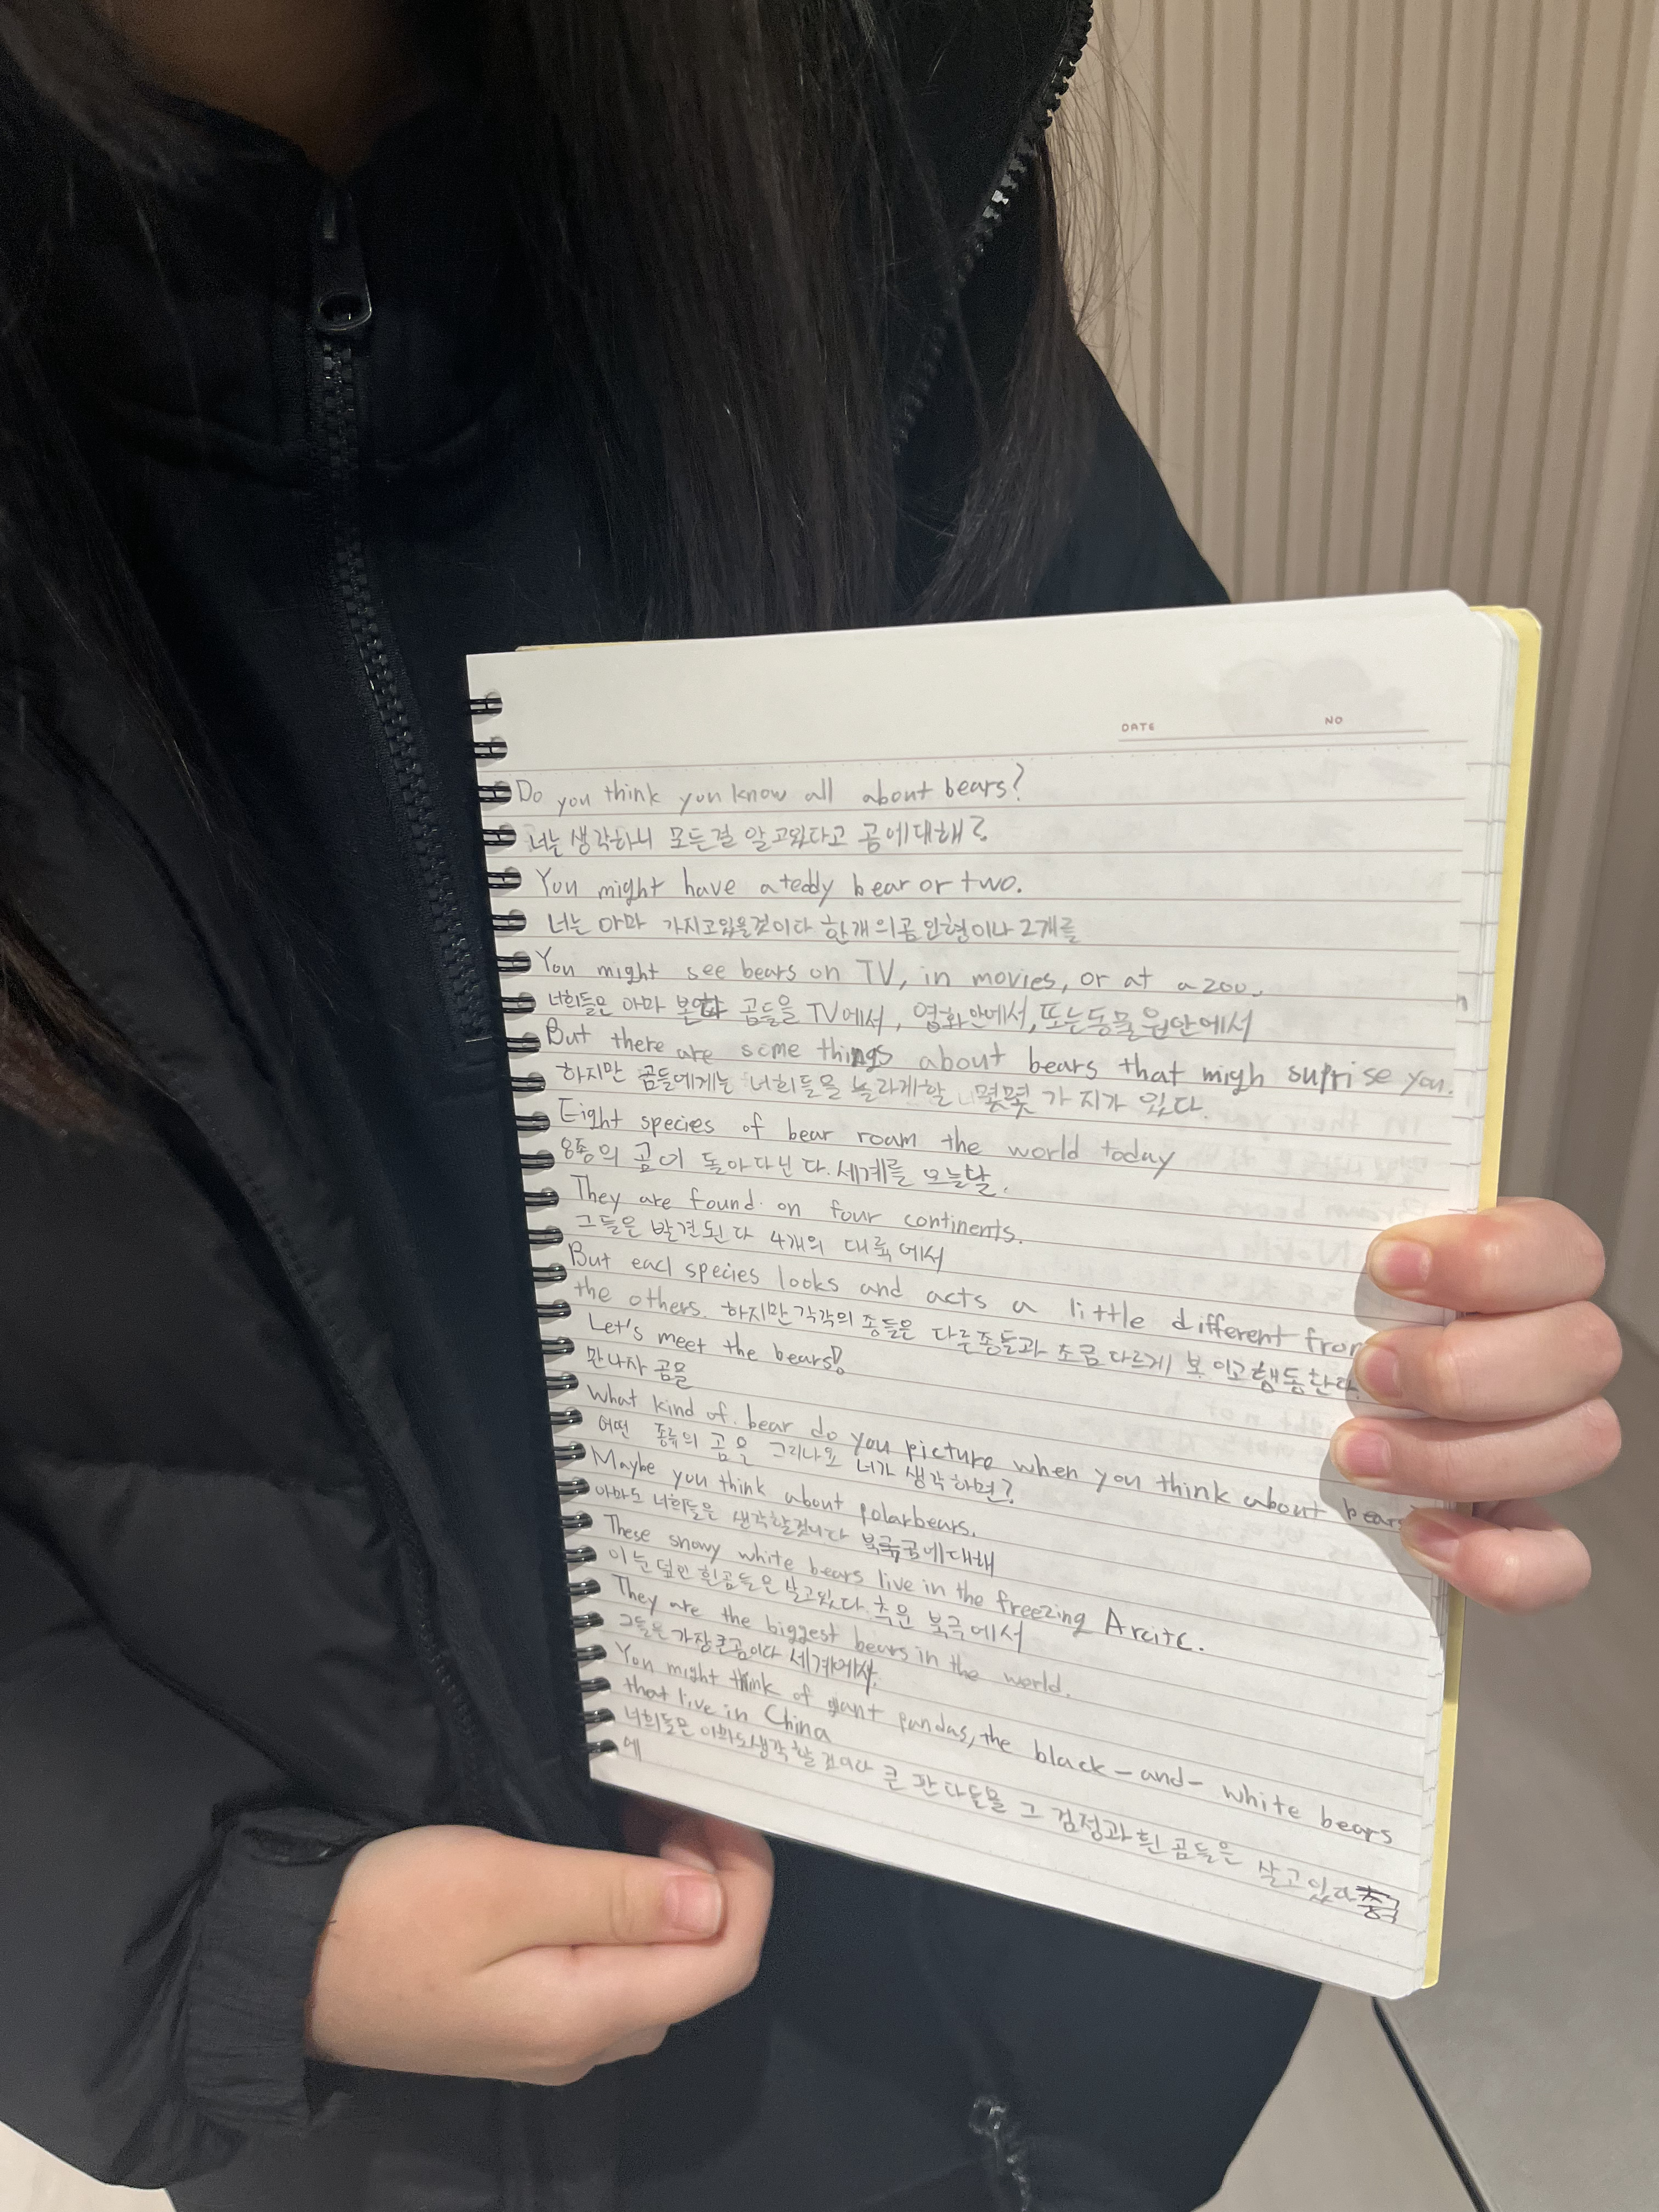 DATE NO
Do you think you know all about bears?
너는 생각하니 모든걸 알고있다고 곰에대해?
You might have a teddy bear or two.
너는 아마 가지고있을것이다 한개의곰인형이나 2개를
You might see bears on TV, in movies, or at a zoo.
너희들은 아마 본다 곰들을 TV에서, 영화안에서, 또는동물원안에서
But there are some things about bears that migh suprise you.
하지만 곰들에게는 너희들을 놀라게할 몇몇 가지가 있다.
Eight species of bear roam the world today
8종의 곰이 돌아다닌다. 세계를 오늘날.
They are found on four continents.
그들은 발견된다 4개의 대륙에서
But each species looks and acts a little different from
the others. 하지만 각각의 종들은 다른종들과 조금 다르게 보이고행동한다.
Let's meet the bears!
만나자 곰을
What kind of bear do you picture when you think about bears
어떤 종류의 곰을 그리나요 너가 생각하면?
Maybe you think about polarbears.
아마도 너희들은 생각할것이다 북극곰에대해
These snowy white bears live in the freezing Arcitc.
이 눈덮인 흰곰들은 살고있다. 추운 북극에서
They are the biggest bears in the world.
그들은 가장큰곰이다 세계에서.
You might think of giant pandas, the black-and-white bears
that live in China
너희들은 아마도생각할것이다 큰 판다들을 그 검정과흰 곰들은 살고있다
에